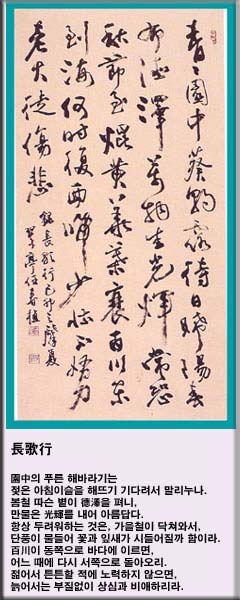 青々園中葵朝露待日晞陽春
布德澤萬物生光輝常恐
秋節至焜黃華葉衰百川東
到海何時復西歸少壯不努力
老大徒傷悲
錄長歌行己卯
亭任春植
長歌行
園中의 푸른 해바라기는
젖은 아침이슬을 해뜨기 기다려서 말리누나.
봄철 따슨 볕이 德澤을 펴니,
만물은 光輝를 내어 아름답다.
항상 두려워하는 것은, 가을철이 닥쳐와서,
단풍이 물들어 꽃과 잎새가 시들어질까 함이라.
百川이 동쪽으로 바다에 이르면,
어느 때에 다시 서쪽으로 돌아오랴.
젊어서 튼튼할 적에 노력하지 않으면,
늙어서는 부질없이 상심과 비애하리라.